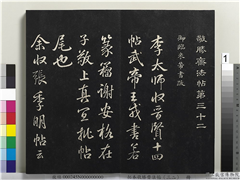 敬勝齋法帖第三十二
御臨米芾書效
李太師收晉賢十四
帖武帝王戎書若
篆籀謝安格在
子敬上真宜批帖
尾也
余收張季明帖云